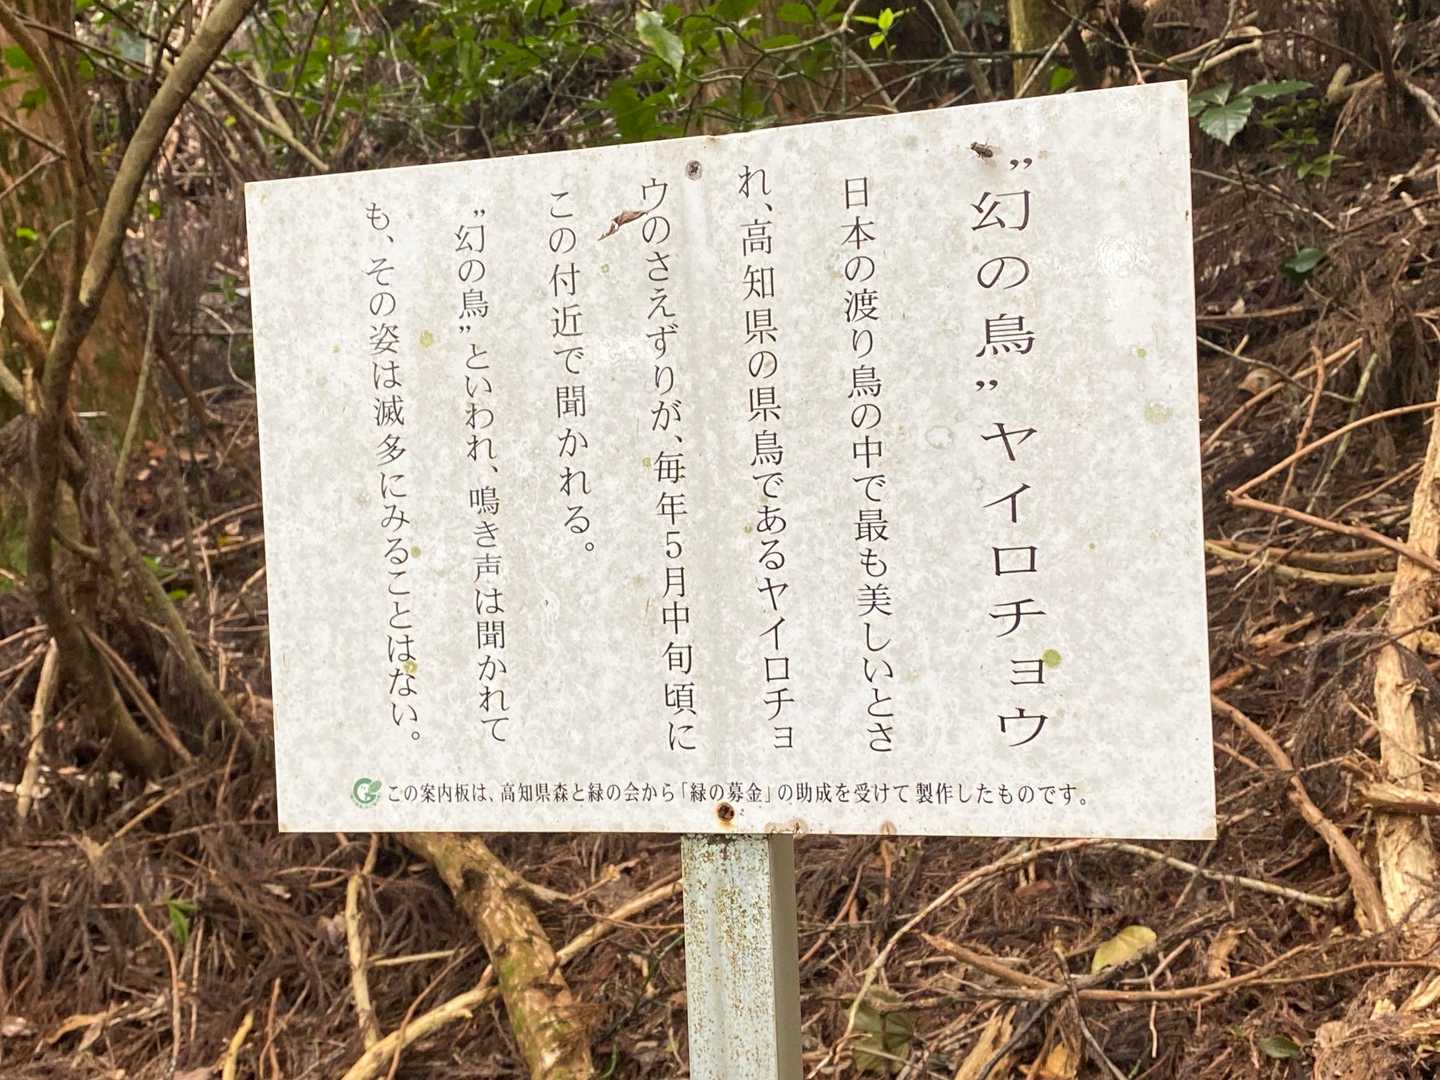 ”幻の鳥”ヤイロチョウ
日本の渡り鳥の中で最も美しいとさ
れ、高知県の県鳥であるヤイロチョ
ウのさえずりが、毎年5月中旬頃に
この付近で聞かれる。
”幻の鳥”といわれ、鳴き声は聞かれて
も、その姿は滅多にみることはない。
この案内板は、高知県森と緑の会から「緑の募金」の助成を受けて製作したものです。